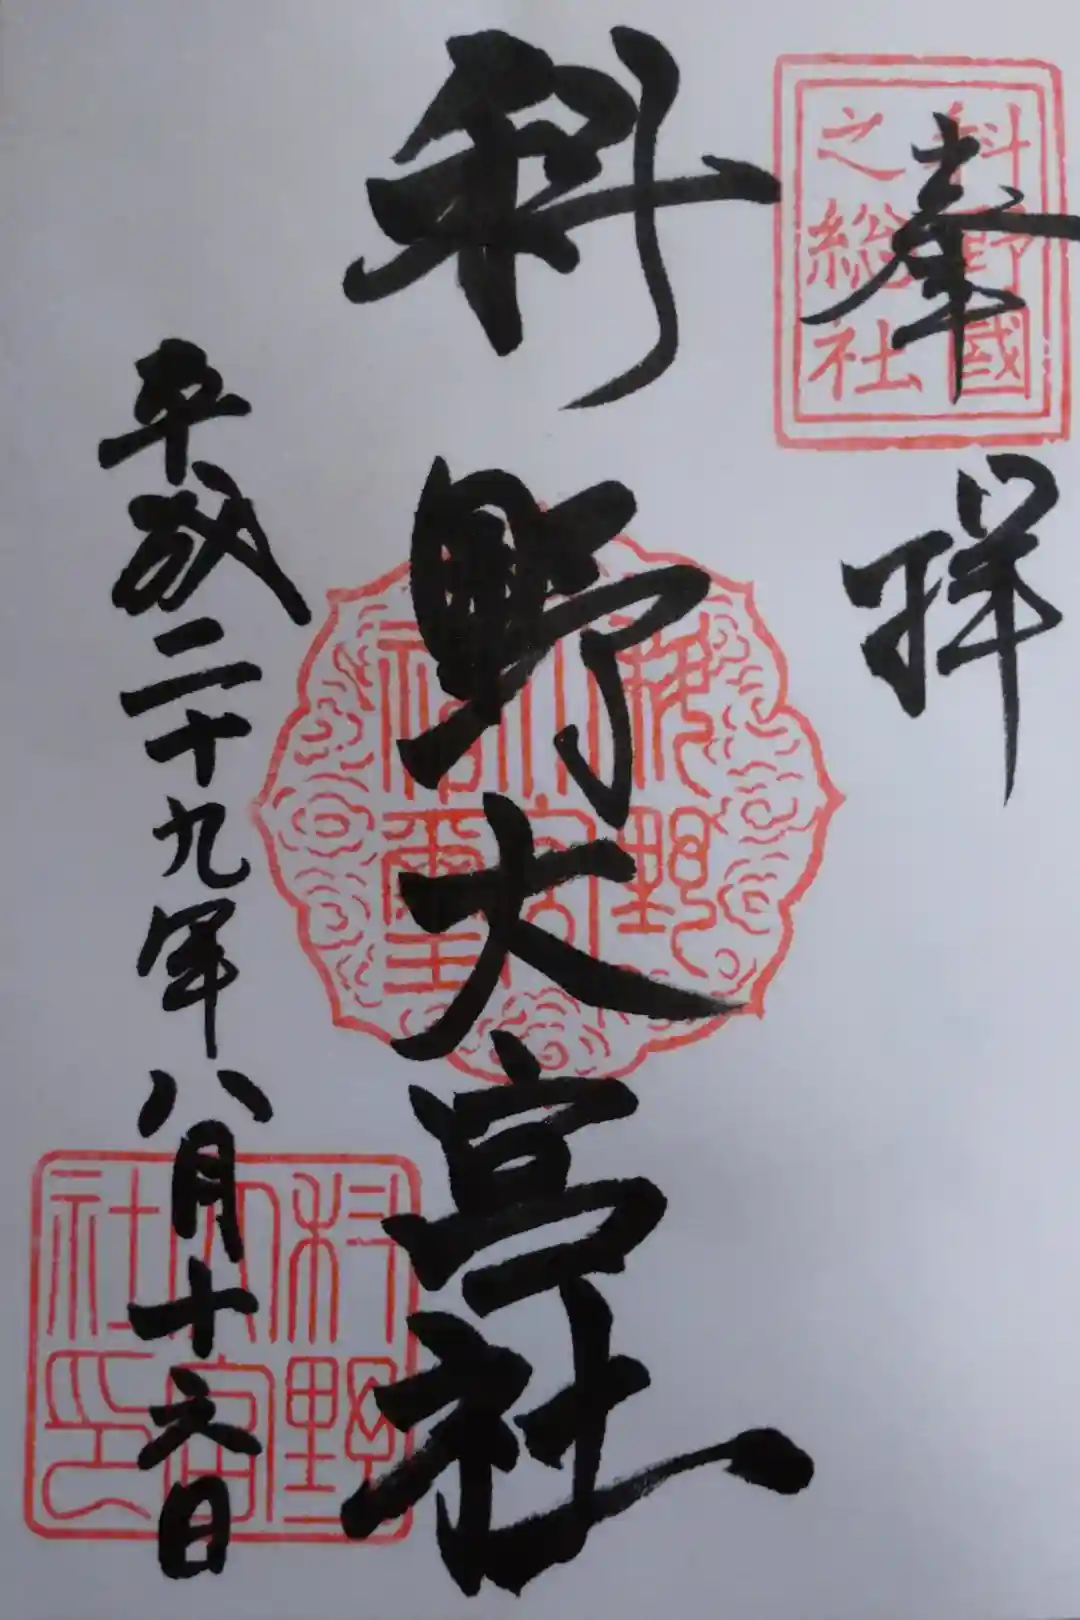 奉拝
科野國
之総社
科野大宮社
科野
大宮
社璽
平成二十九年八月十六日
科野
大宮
社印